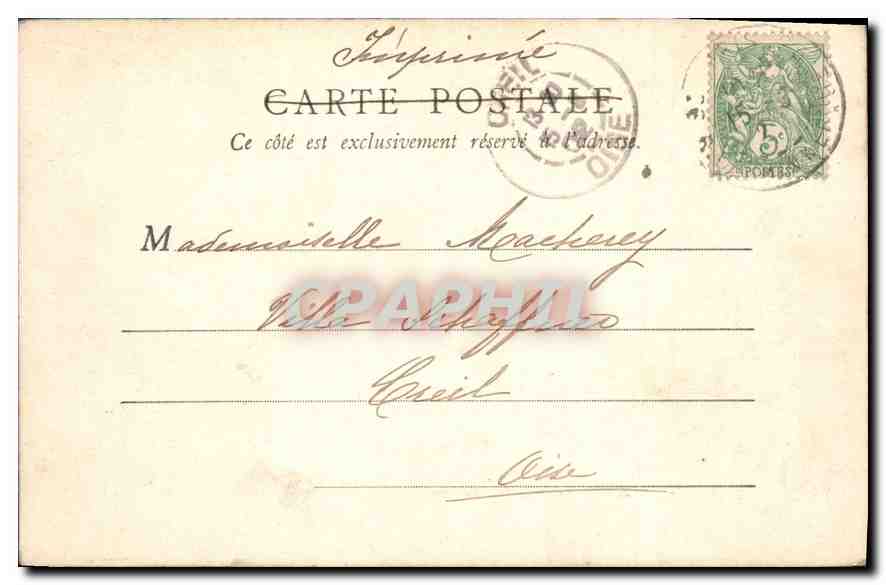 Imprimé
CARTE POSTALE
Ce côté est exclusivement réservé à l'adresse.
CREIL
OISE
5c
POSTES
Mademoiselle Macherey
CPAPHIL
Villa
Creil
Oise